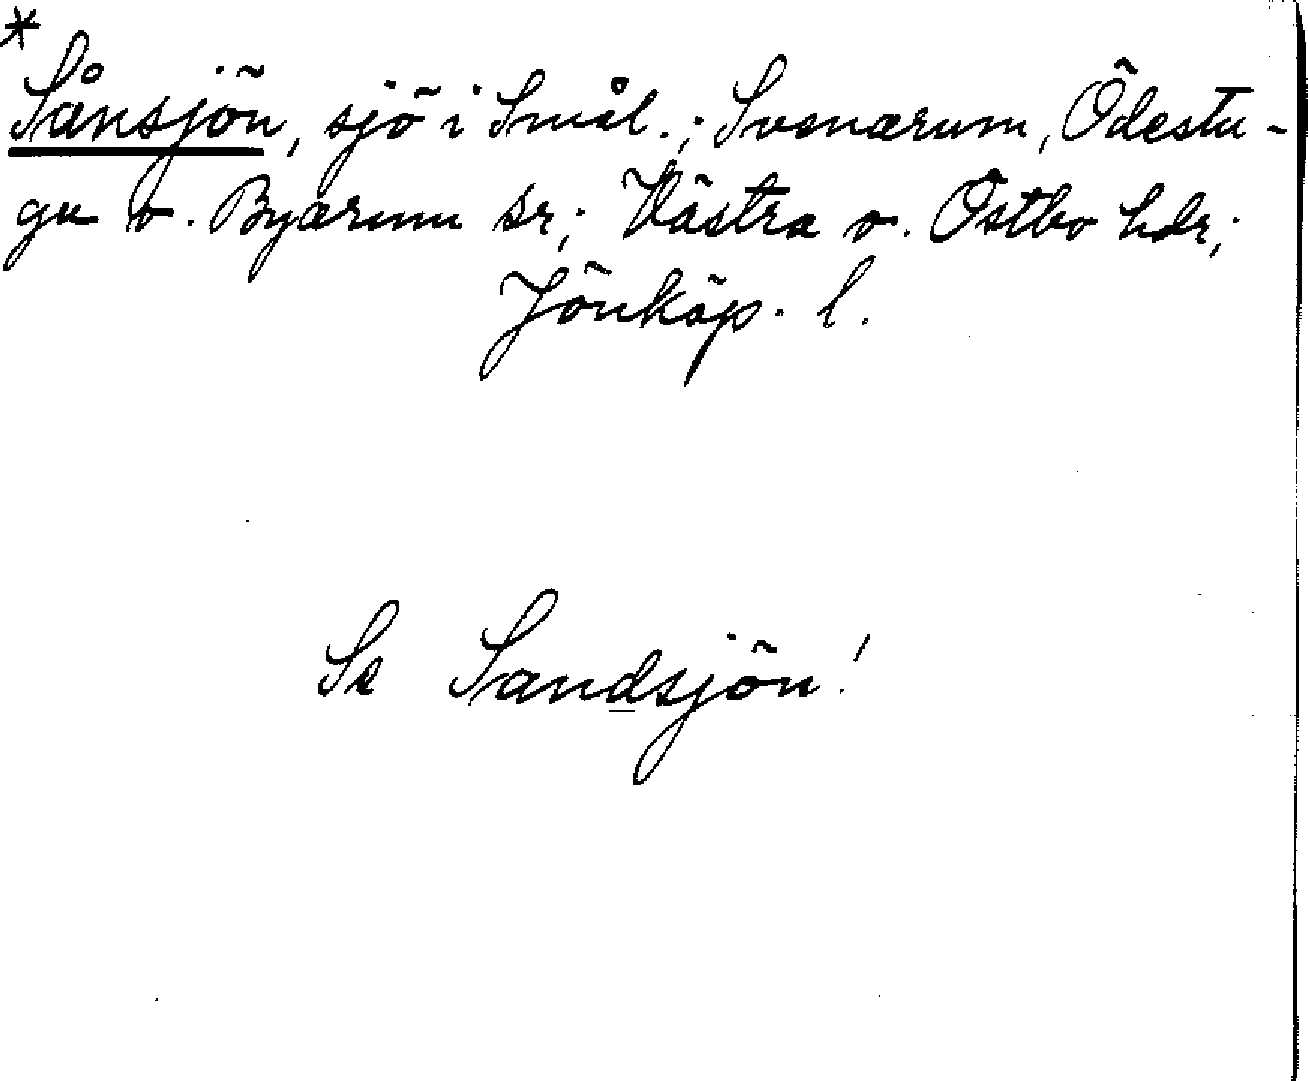 *
Sånsjön, sjö i Smål.; Svenarum, Ödestu-
gu o. Byarum sr; Västra o. Östbo hdr;
Jönköp. l.
Se Sandsjön!